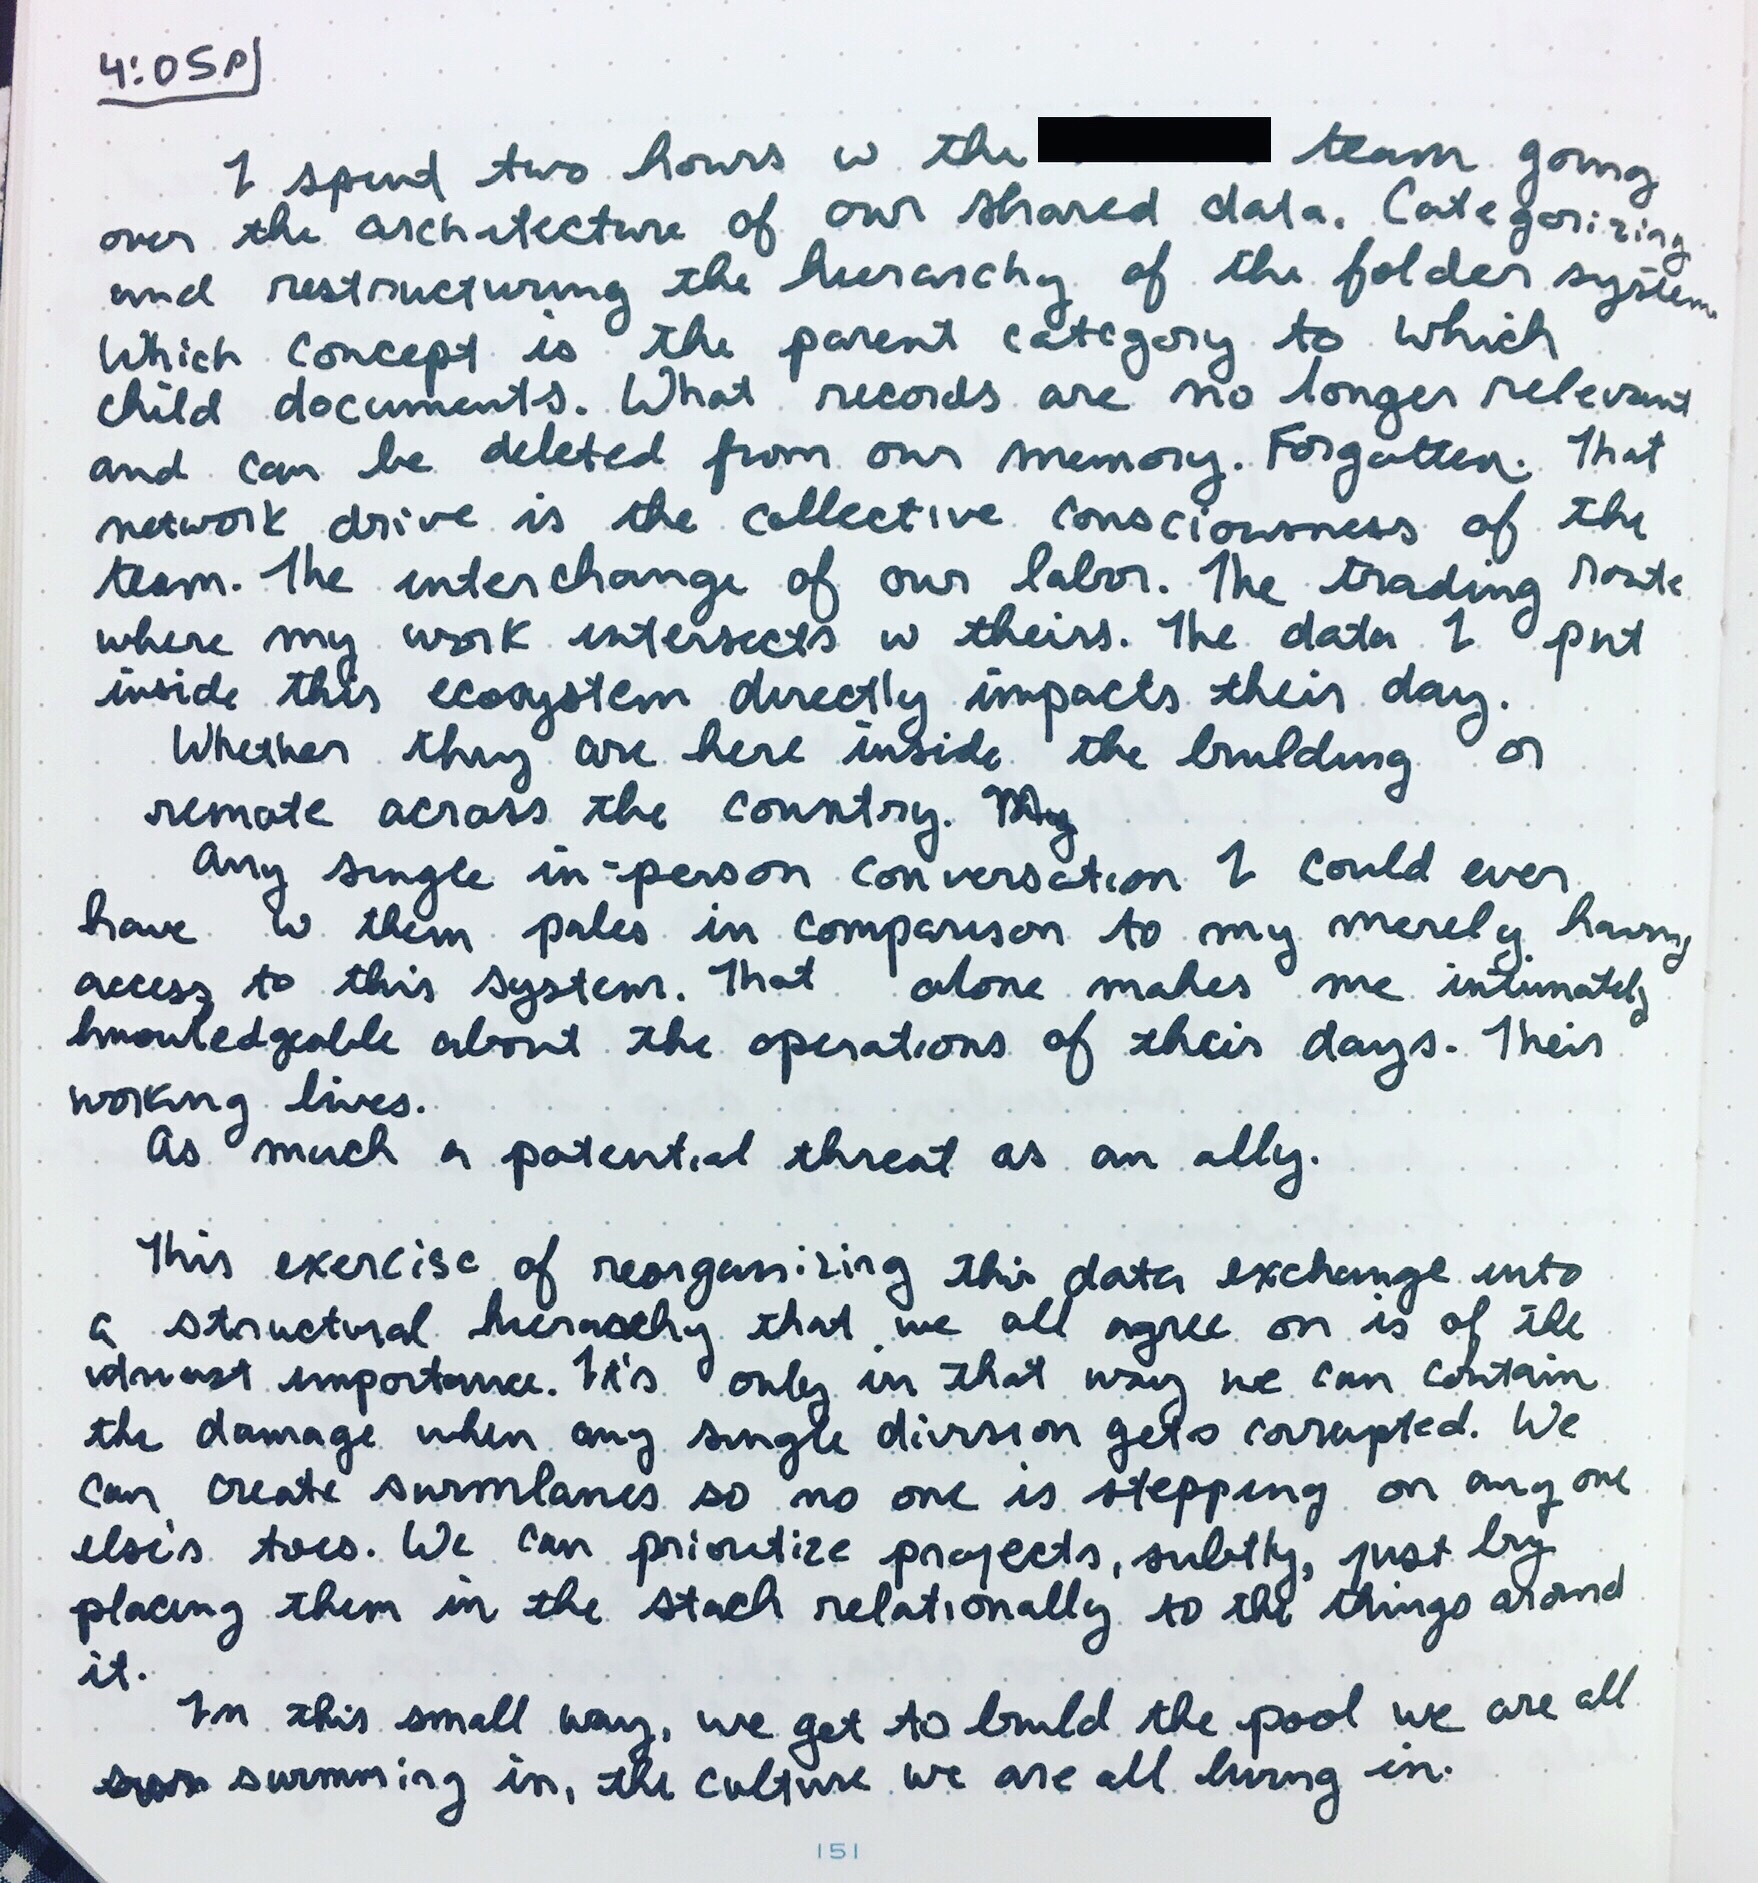 4:05p
I spent two hours w the team going
over the architecture of our shared data. Categorizing
and restructuring the hierarchy of the folder system.
Which concept is the parent category to which
child documents. What records are no longer relevant
and can be deleted from our memory. Forgotten. That
network drive is the collective consciousness of the
team. The interchange of our labor. The trading route
where my work intersects w theirs. The data I put
inside this ecosystem directly impacts their day.
Whether they are here inside the building or
remote across the country. My
Any single in-person conversation I could ever
have w them pales in comparison to my merely having
access to this system. That alone makes me intimately
knowledgeable about the operations of their days. Their
working lives.
As much a potential threat as an ally.
This exercise of reorganizing this data exchange into
a structural hierarchy that we all agree on is of the
utmost importance. It's only in that way we can contain
the damage when any single division gets corrupted. We
can create swimlanes so no one is stepping on any one
else's toes. We can prioritize projects, subtly, just by
placing them in the stack relationally to the things around
it.
In this small way, we get to build the pool we are all
swimming in, the culture we are all living in.
151